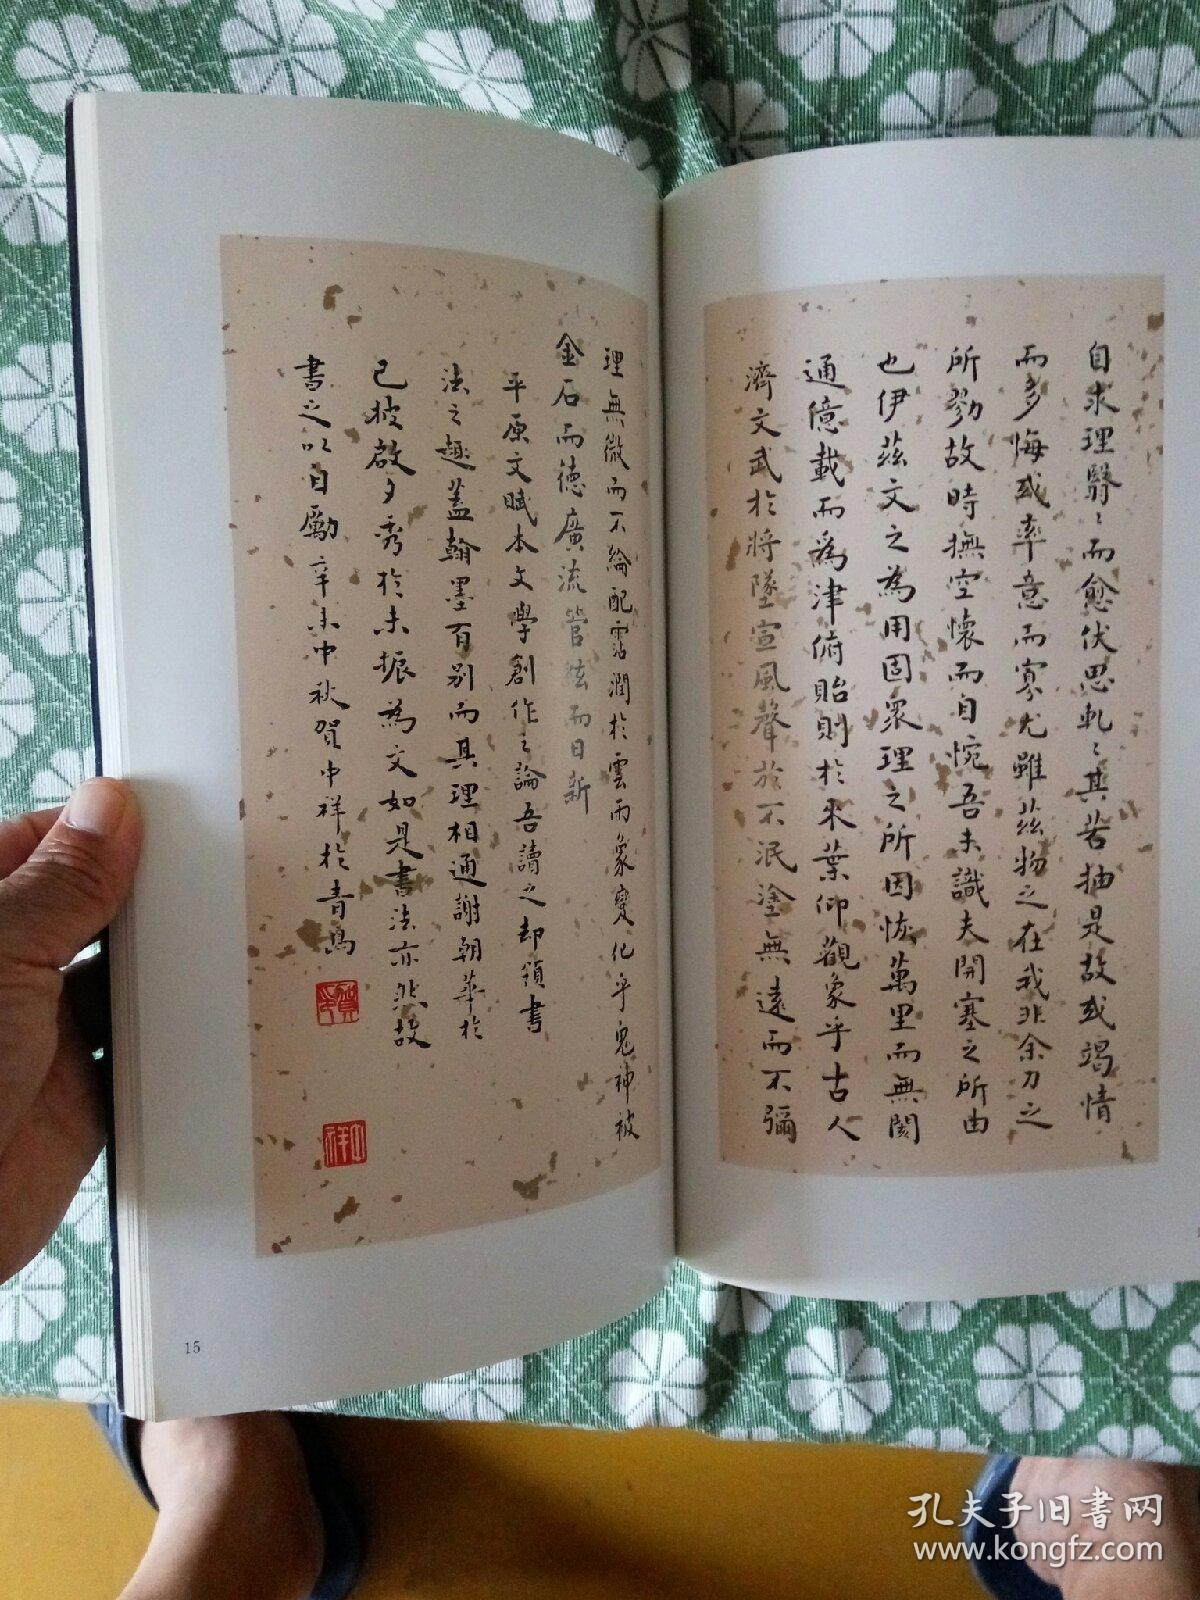 自求理翳〻而愈伏思軋〻其若抽是故或竭情
而多悔或率意而寡尤雖茲物之在我非余力之
所勠故時撫空懷而自惋吾未識夫開塞之所由
也伊茲文之為用固衆理之所因恢萬里而無閡
通億載而為津俯貽則於來葉仰觀象乎古人
濟文武於將墜宣風聲於不泯塗無遠而不彌
理無微而不綸配霑潤於雲雨象變化乎鬼神被
金石而德廣流管絃而日新
平原文賦本文學創作之論吾讀之却領書
法之趣蓋翰墨百別而其理相通謝朝華於
已披啟夕秀於未振為文如是書法亦然故
書之以自勵辛未中秋賀中祥於青島
賀
中祥
15
孔夫子旧书网
www.kongfz.com